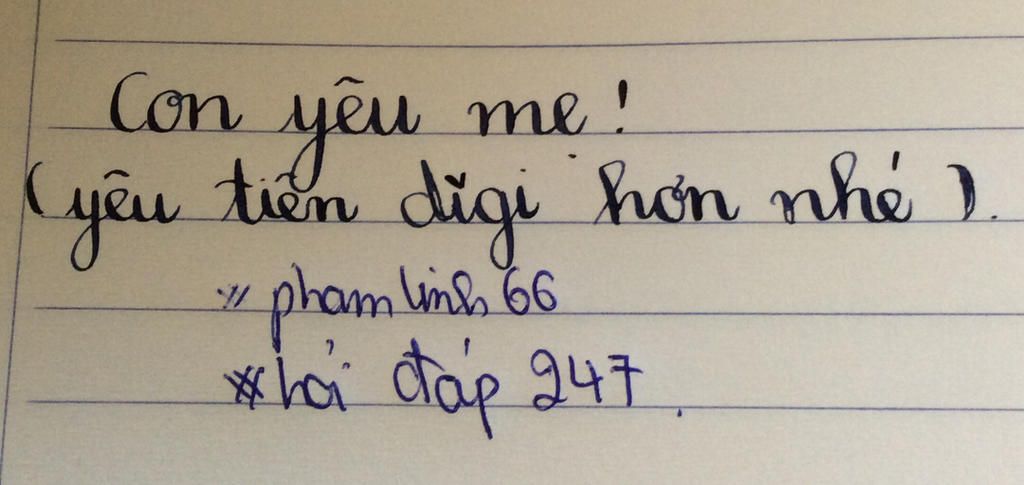 Con yêu mẹ!
(yêu tiền digi hơn nhé).
" phamlinh66
* hỏi đáp 247.